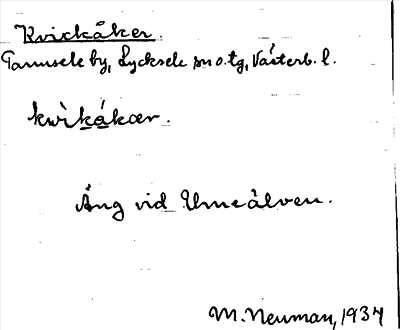 Kvickåker.
Tannsele by, Lycksele sn o. tg, Västerb. l.
kwìkákær.
Äng vid Umeälven.
M. Neuman, 1937